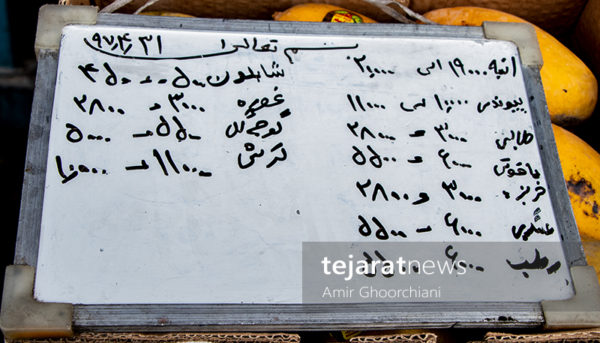 بسم تعالی ۹۷/۴/۳۱
انبه ۱۹۰۰۰ الی ۲۰۰۰۰
پیوندی ۱۰۰۰۰ الی ۱۱۰۰۰
طالبی ۳۰۰۰ - ۲۸۰۰
یاقوتی ۶۰۰۰ - ۵۵۰۰
خربزه ۳۰۰۰ - ۲۸۰۰
عسگری ۶۰۰۰ - ۵۵۰۰
رطب ۶۰۰۰ ۵۵۰۰
شابلون ۵۰۰۰ - ۴۵۰۰
۳۰۰۰ - ۲۸۰۰
گوجه ۵۵۰۰ - ۵۰۰۰
ترش ۱۱۰۰۰ - ۱۰۰۰۰
tejaratnews
Amir Ghoorchiani